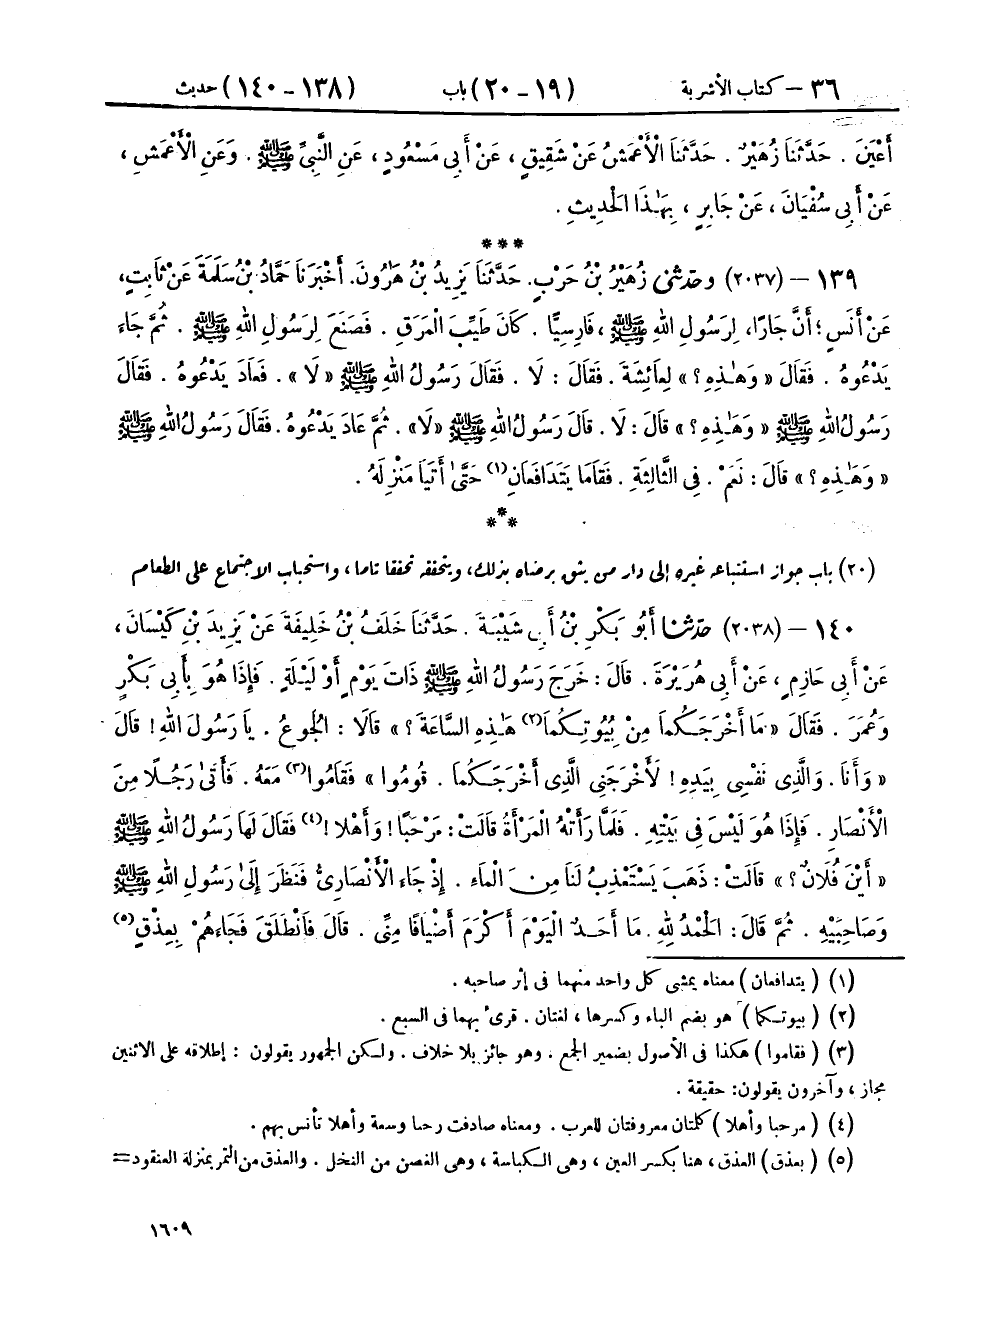 ٣٦ – كتاب الأشربة (١٩ – ٢٠) باب (١٣٨ – ١٤٠) حديث
أَعْيَنَ . حَدَّثَنَا زُهَيْرٌ . حَدَّثَنَا الْأَعْمَشُ عَنْ شَقِيقٍ ، عَنْ أَبِي مَسْعُودٍ ، عَنِ النَّبِيِّ ﷺ . وَعَنِ الْأَعْمَشِ ،
عَنْ أَبِي سُفْيَانَ ، عَنْ جَابِرٍ ، بِهَٰذَا الْحَدِيثِ .
***
١٣٩ – (٢٠٣٧) وحدّثنى زُهَيْرُ بْنُ حَرْبٍ. حَدَّثَنَا يَزِيدُ بْنُ هَارُونَ. أَخْبَرَنَا حَمَّادُ بْنُ سَلَمَةَ عَنْ ثَابِتٍ،
عَنْ أَنَسٍ ؛ أَنَّ جَارًا، لِرَسُولِ اللهِ ﷺ ، فَارِسِيًّا . كَانَ طَيِّبَ الْمَرَقِ . فَصَنَعَ لِرَسُولِ اللهِ ﷺ . ثُمَّ جَاءَ
يَدْعُوهُ . فَقَالَ « وَهَٰذِهِ ؟ » لِعَائِشَةَ . فَقَالَ : لَا . فَقَالَ رَسُولُ اللهِ ﷺ « لَا » . فَعَادَ يَدْعُوهُ . فَقَالَ
رَسُولُ اللهِ ﷺ « وَهَٰذِهِ ؟ » قَالَ : لَا . قَالَ رَسُولُ اللهِ ﷺ «لَا» . ثُمَّ عَادَ يَدْعُوهُ . فَقَالَ رَسُولُ اللهِ ﷺ
« وَهَٰذِهِ ؟ » قَالَ : نَعَمْ . فِي الثَّالِثَةِ . فَقَامَا يَتَدَافَعَانِ(١) حَتَّىٰ أَتَيَا مَنْزِلَهُ .
***
(٢٠) باب جواز استتباعه غيره إلى دار من يثق برضاه بذلك، وبتحققه تحققا تاما، واستحباب الاجتماع على الطعام
١٤٠ – (٢٠٣٨) حدّثنا أَبُو بَكْرِ بْنُ أَبِي شَيْبَةَ . حَدَّثَنَا خَلَفُ بْنُ خَلِيفَةَ عَنْ يَزِيدَ بْنِ كَيْسَانَ ،
عَنْ أَبِي حَازِمٍ ، عَنْ أَبِي هُرَيْرَةَ . قَالَ : خَرَجَ رَسُولُ اللهِ ﷺ ذَاتَ يَوْمٍ أَوْ لَيْلَةٍ . فَإِذَا هُوَ بِأَبِي بَكْرٍ
وَعُمَرَ . فَقَالَ « مَا أَخْرَجَكُمَا مِنْ بُيُوتِكُمَا(٢) هَٰذِهِ السَّاعَةَ ؟ » قَالَا : الْجُوعُ . يَا رَسُولَ اللهِ ! قَالَ
« وَأَنَا . وَالَّذِي نَفْسِي بِيَدِهِ ! لَأَخْرَجَنِي الَّذِي أَخْرَجَكُمَا . قُومُوا » فَقَامُوا(٣) مَعَهُ . فَأَتَىٰ رَجُلًا مِنَ
الْأَنْصَارِ . فَإِذَا هُوَ لَيْسَ فِي بَيْتِهِ . فَلَمَّا رَأَتْهُ الْمَرْأَةُ قَالَتْ : مَرْحَبًا ! وَأَهْلًا !(٤) فَقَالَ لَهَا رَسُولُ اللهِ ﷺ
« أَيْنَ فُلَانٌ ؟ » قَالَتْ : ذَهَبَ يَسْتَعْذِبُ لَنَا مِنَ الْمَاءِ . إِذْ جَاءَ الْأَنْصَارِيُّ فَنَظَرَ إِلَىٰ رَسُولِ اللهِ ﷺ
وَصَاحِبَيْهِ . ثُمَّ قَالَ : الْحَمْدُ لِلهِ . مَا أَحَدٌ الْيَوْمَ أَكْرَمَ أَضْيَافًا مِنِّي . قَالَ فَانْطَلَقَ فَجَاءَهُمْ بِعِذْقٍ(٥)
(١) ( يتدافعان ) معناه يمشى كل واحد منهما فى إثر صاحبه .
(٢) ( بيوتكما ) هو بضم الباء وكسرها ، لغتان . قرئ بهما فى السبع .
(٣) ( فقاموا ) هكذا فى الأصول بضمير الجمع . وهو جائز بلا خلاف . ولكن الجمهور يقولون : إطلاقه على الاثنين
مجاز ، وآخرون يقولون: حقيقة .
(٤) ( مرحبا وأهلا ) كلمتان معروفتان للعرب . ومعناه صادفت رحبا وسعة وأهلا تأنس بهم .
(٥) ( بعذق ) العذق ، هنا بكسر العين ، وهى الكباسة ، وهى الغصن من النخل . والعذق من التمر بمنزلة العنقود =
١٦٠٩